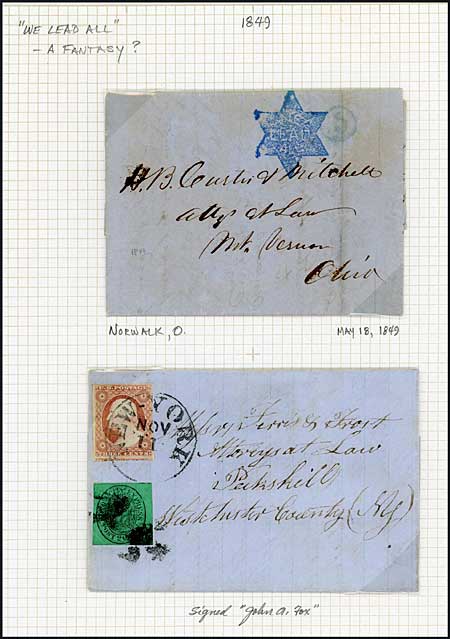 "WE LEAD ALL"
— A FANTASY?
1849
WE
LEAD
ALL
5
H. B. Curtis & Mitchell
Attys at Law
Mt. Vernon
Ohio
1849
NORWALK, O.
MAY 18, 1849
U.S. POSTAGE
THREE CENTS
NEW-YORK
NOV
11
Messrs Ferris & Frost
Attorneys at Law
Peekskill
West Chester County (NY)
Signed "John A. Fox"